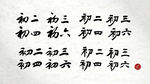 初二 初三 初二 初三
初四 初六 初四 初六
初二 初三 初二 初三
初四 初六 初四 初六